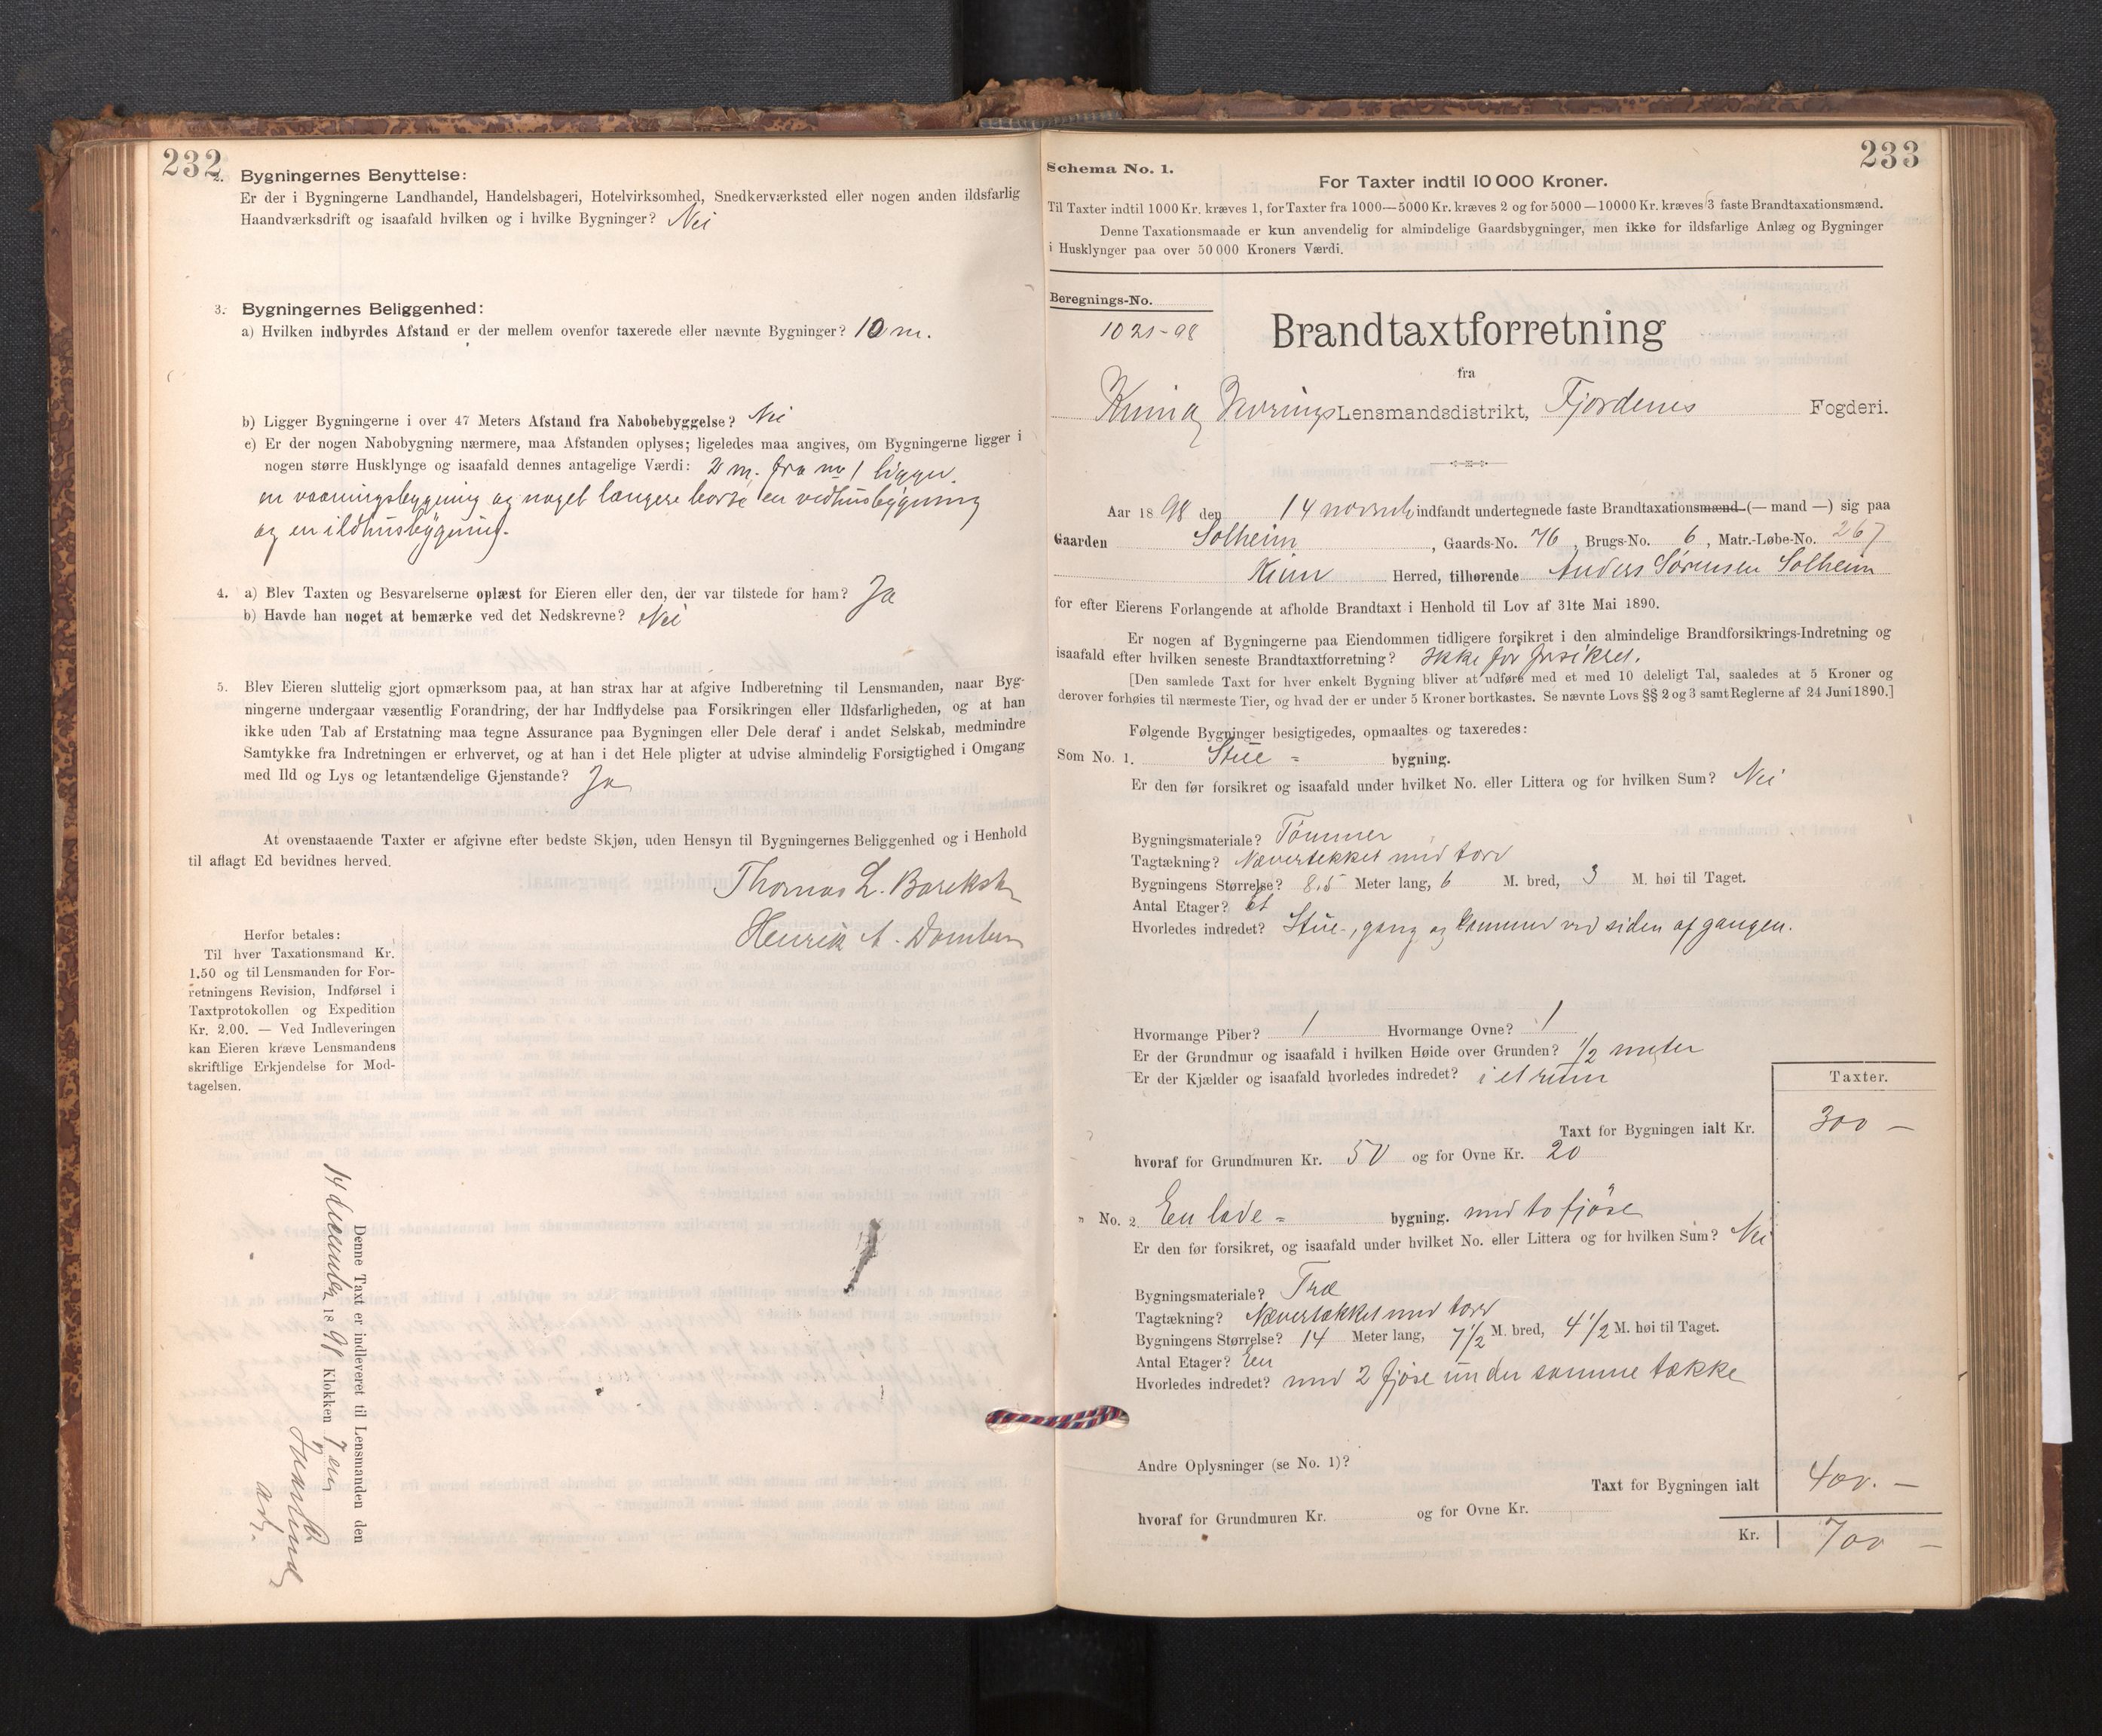 232
2. Bygningernes Benyttelse:
Er der i Bygningerne Landhandel, Handelsbageri, Hotelvirksomhed, Snedkerværksted eller nogen anden ildsfarlig
Haandværksdrift og isaafald hvilken og i hvilke Bygninger? Nei
3. Bygningernes Beliggenhed:
a) Hvilken indbyrdes Afstand er der mellem ovenfor taxerede eller nævnte Bygninger? 10 m.
b) Ligger Bygningerne i over 47 Meters Afstand fra Nabobebyggelse? Nei
c) Er der nogen Nabobygning nærmere, maa Afstanden oplyses; ligeledes maa angives, om Bygningerne ligger i
nogen større Husklynge og isaafald dennes antagelige Værdi: 2 m. fra no 1 ligger
en vaaningsbygning og noget længere borte en vedhusbygning
og en ildhusbygning.
4. a) Blev Taxten og Besvarelserne oplæst for Eieren eller den, der var tilstede for ham? Ja
b) Havde han noget at bemærke ved det Nedskrevne? Nei
5. Blev Eieren sluttelig gjort opmærksom paa, at han strax har at afgive Indberetning til Lensmanden, naar Byg-
ningerne undergaar væsentlig Forandring, der har Indflydelse paa Forsikringen eller Ildsfarligheden, og at han
ikke uden Tab af Erstatning maa tegne Assurance paa Bygningen eller Dele deraf i andet Selskab, medmindre
Samtykke fra Indretningen er erhvervet, og at han i det Hele pligter at udvise almindelig Forsigtighed i Omgang
med Ild og Lys og letantændelige Gjenstande? Ja
At ovenstaaende Taxter er afgivne efter bedste Skjøn, uden Hensyn til Bygningernes Beliggenhed og i Henhold
til aflagt Ed bevidnes herved.
Thomas L.
Henrik A.
Herfor betales:
Til hver Taxationsmand Kr.
1.50 og til Lensmanden for For-
retningens Revision, Indførsel i
Taxtprotokollen og Expedition
Kr. 2.00. — Ved Indleveringen
kan Eieren kræve Lensmandens
skriftlige Erkjendelse for Mod-
tagelsen.
Denne Taxt er indleveret til Lensmanden den
14 december 1898 Klokken 7 em
233
Schema No. 1.
For Taxter indtil 10 000 Kroner.
Til Taxter indtil 1000 Kr. kræves 1, for Taxter fra 1000—5000 Kr. kræves 2 og for 5000—10000 Kr. kræves 3 faste Brandtaxationsmænd.
Denne Taxationsmaade er kun anvendelig for almindelige Gaardsbygninger, men ikke for ildsfarlige Anlæg og Bygninger
i Husklynger paa over 50 000 Kroners Værdi.
Beregnings-No.
1021-98
Brandtaxtforretning
fra
Kinn og Lensmandsdistrikt, Fjordenes Fogderi.
Aar 1898 den 14 novemb indfandt undertegnede faste Brandtaxationsmænd (— mand —) sig paa
Gaarden Solheim, Gaards-No. 76, Brugs-No. 6, Matr.-Løbe-No. 267
Kinn Herred, tilhørende Anders Sørensen Solheim
for efter Eierens Forlangende at afholde Brandtaxt i Henhold til Lov af 31te Mai 1890.
Er nogen af Bygningerne paa Eiendommen tidligere forsikret i den almindelige Brandforsikrings-Indretning og
isaafald efter hvilken seneste Brandtaxtforretning? Ikke før forsikret.
[Den samlede Taxt for hver enkelt Bygning bliver at udføre med et med 10 deleligt Tal, saaledes at 5 Kroner og
derover forhøies til nærmeste Tier, og hvad der er under 5 Kroner bortkastes. Se nævnte Lovs §§ 2 og 3 samt Reglerne af 24 Juni 1890.]
Følgende Bygninger besigtigedes, opmaaltes og taxeredes:
Som No. 1. Stue = bygning.
Er den før forsikret og isaafald under hvilket No. eller Littera og for hvilken Sum? Nei
Bygningsmateriale? Tømmer
Tagtækning? Nævertekket med torv
Bygningens Størrelse? 8.5 Meter lang, 6 M. bred, 3 M. høi til Taget.
Antal Etager? et
Hvorledes indredet? Stue-, gang og kammer ved siden af gangen.
Hvormange Piber? 1 Hvormange Ovne? 1
Er der Grundmur og isaafald i hvilken Høide over Grunden? 1/2 meter
Er der Kjælder og isaafald hvorledes indredet? i et rum
Taxter.
Taxt for Bygningen ialt Kr. 300 —
hvoraf for Grundmuren Kr. 50 og for Ovne Kr. 20
" No. 2. En lade = bygning. med to fjøse
Er den før forsikret, og isaafald under hvilket No. eller Littera og for hvilken Sum? Nei
Bygningsmateriale? Træ
Tagtækning? Nævertækket med torv
Bygningens Størrelse? 14 Meter lang, 7 1/2 M. bred, 4 1/2 M. høi til Taget.
Antal Etager? En
Hvorledes indredet? med 2 fjøse under samme tække
Andre Oplysninger (se No. 1)?
Taxt for Bygningen ialt 400. —
hvoraf for Grundmuren Kr. og for Ovne Kr.
Kr. 700 —